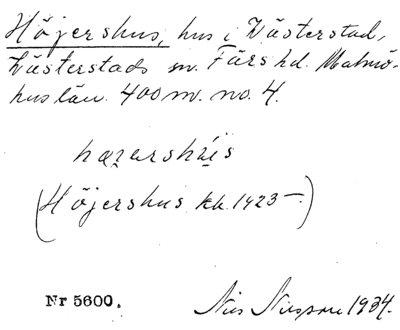 Höjershus, hus i Västerstad,
Västerstads sn. Färs hd. Malmö-
hus län. 400 m. no. 4.
(Höjershus kb. 1923 —)
Nr 5600. Nils 1934.